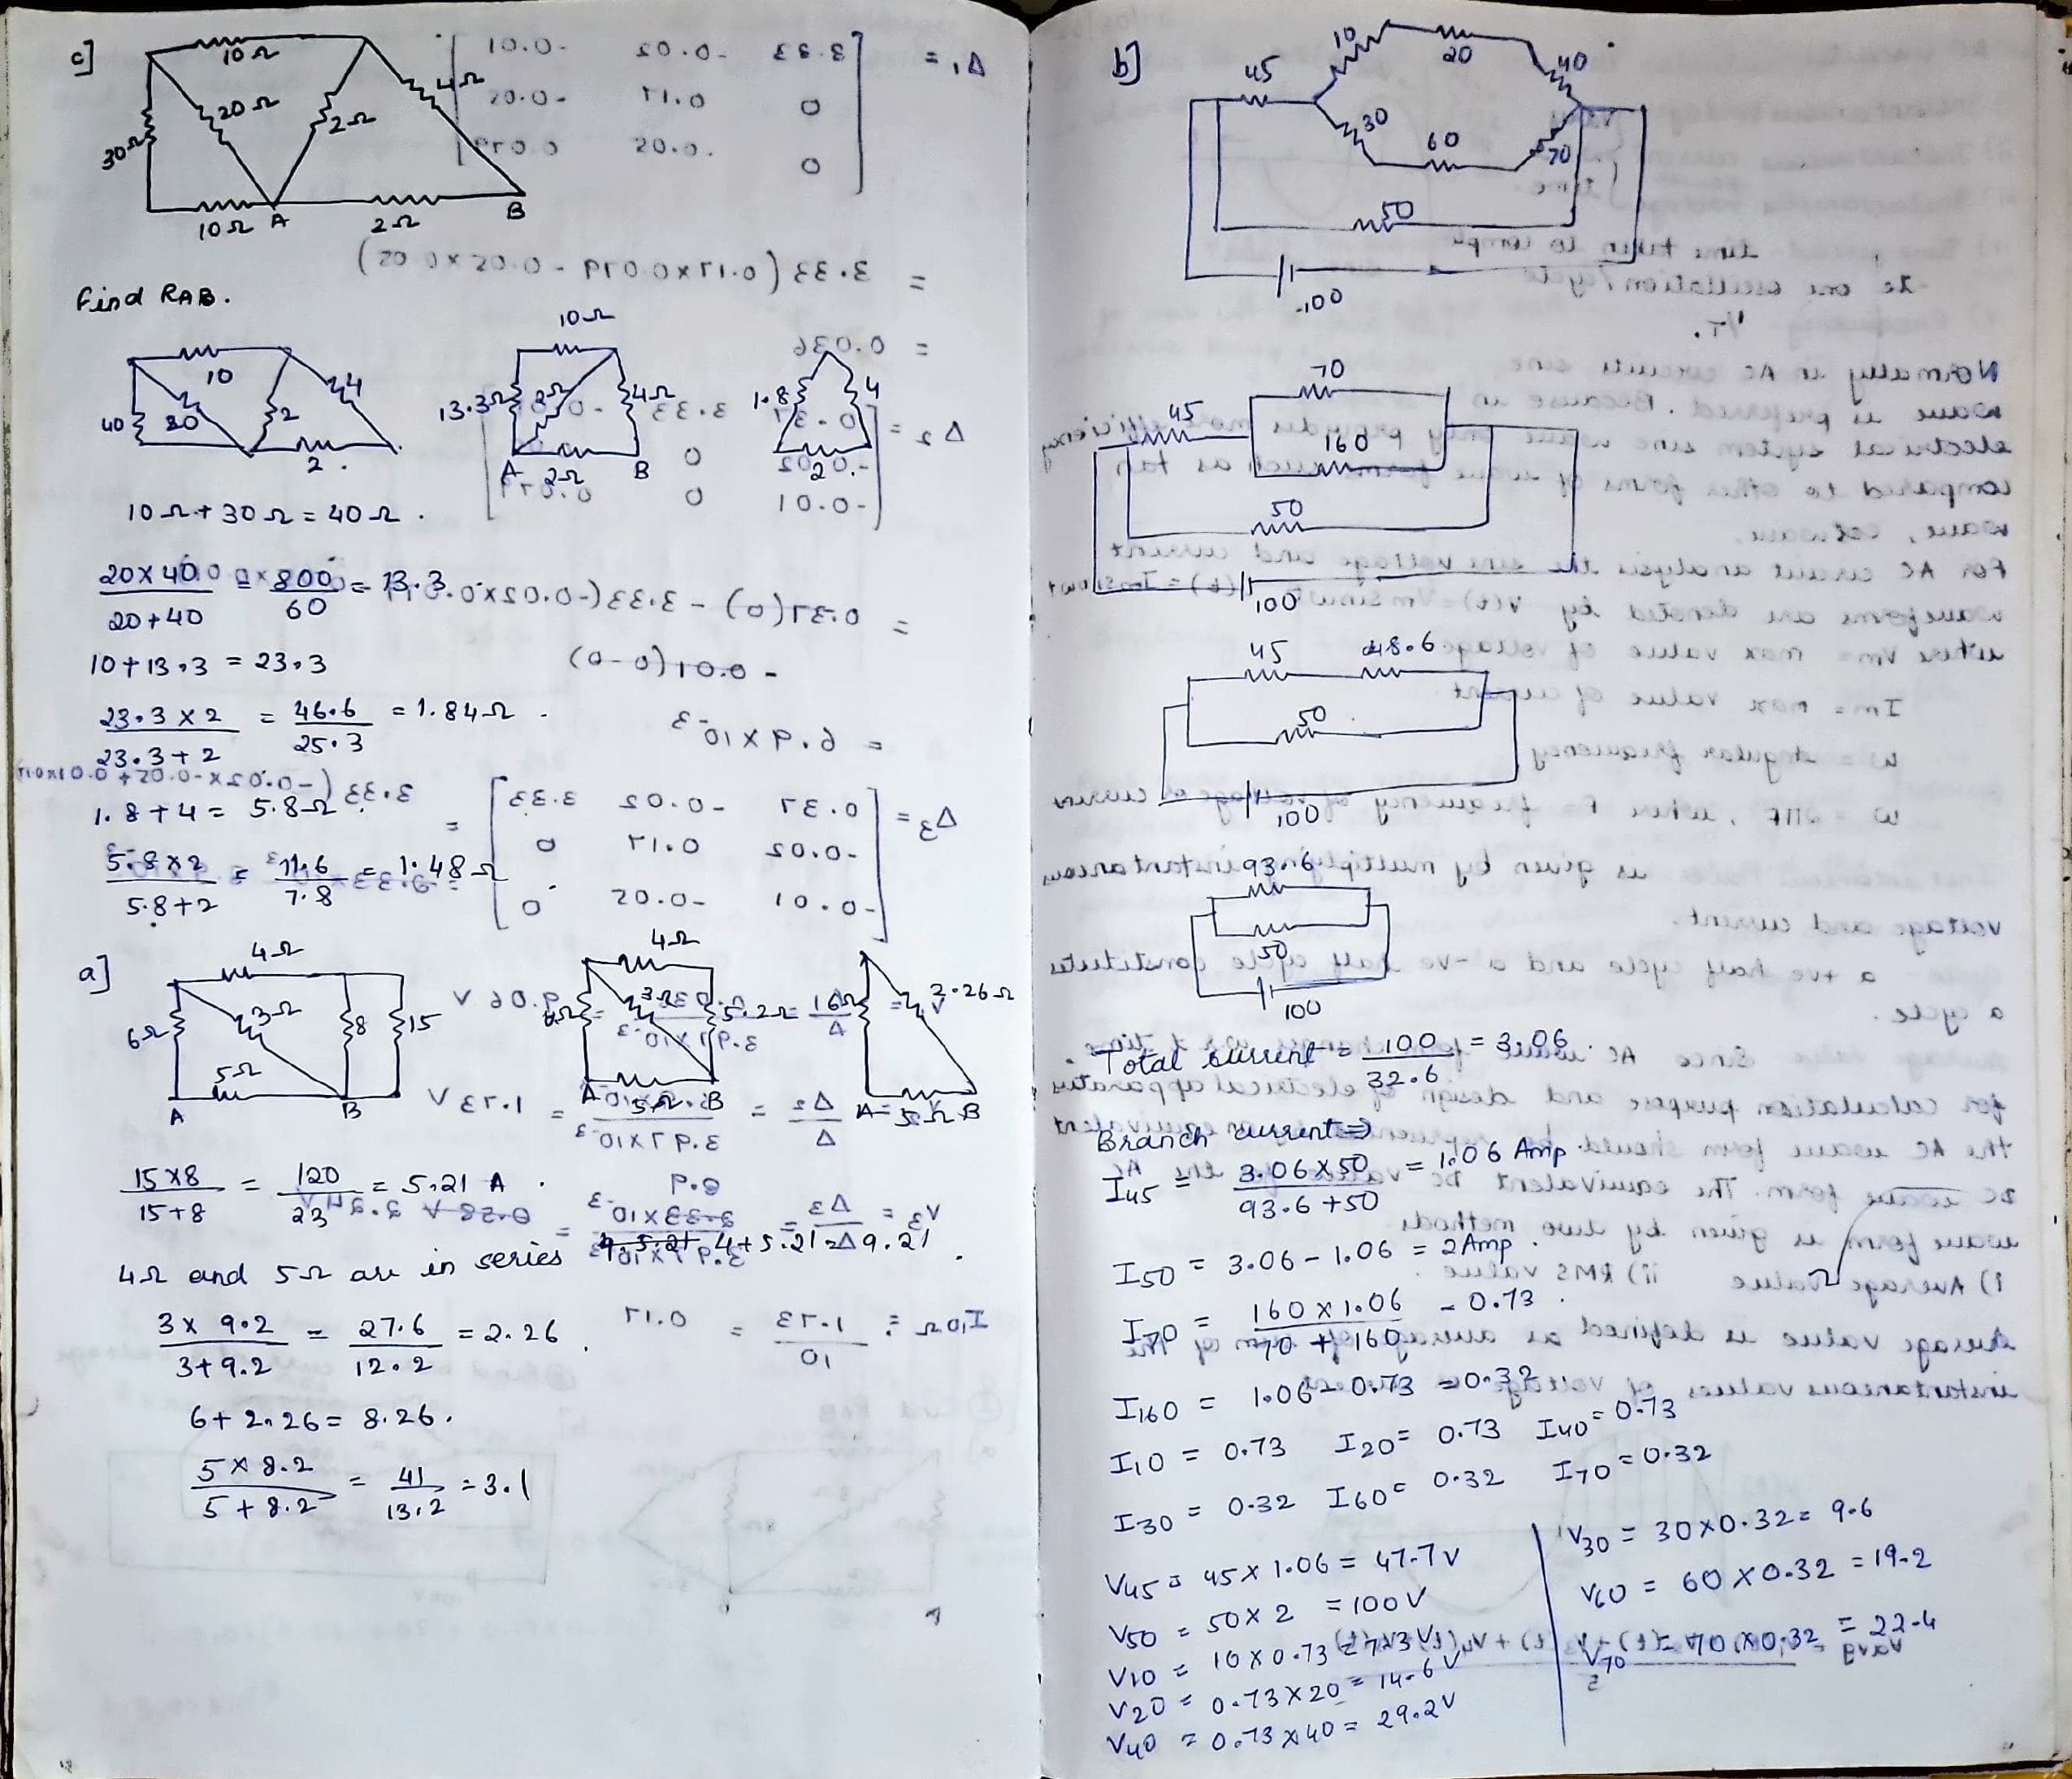 c]
10Ω
4Ω
20Ω
2Ω
30Ω
10Ω A 2Ω B
Find RAB.
10
4
40 20 2
2.
10Ω
13.3Ω 2Ω 4Ω
A 2Ω B
1.8 4
2
10Ω + 30Ω = 40Ω.
20×40 / 20+40 = 800 / 60 = 13.3
10+13.3 = 23.3
23.3×2 / 23.3+2 = 46.6 / 25.3 = 1.84Ω.
1.8+4 = 5.8Ω
5.8×2 / 5.8+2 = 11.6 / 7.8 = 1.48Ω
a]
4Ω
6Ω 3Ω 8 15
5Ω
A B
4Ω
3Ω 5.2Ω
A 5Ω B
2.26Ω
A 5Ω B
15×8 / 15+8 = 120 / 23 = 5.21 A.
4Ω and 5Ω are in series 4+5.21 = 9.21.
3×9.2 / 3+9.2 = 27.6 / 12.2 = 2.26.
6+2.26 = 8.26.
5×8.2 / 5+8.2 = 41 / 13.2 = 3.1
b]
45 10 20 40
30 60 70
50
100
70
45
160
50
100
45 48.6
50
100
93.6
50
100
Total current = 100 / 32.6 = 3.06.
Branch current ⇒
I45 = 3.06×50 / 93.6+50 = 1.06 Amp.
I50 = 3.06 - 1.06 = 2 Amp.
I70 = 160×1.06 / 70+160 = 0.73.
I160 = 1.06 - 0.73 = 0.32
I10 = 0.73 I20 = 0.73 I40 = 0.73
I30 = 0.32 I60 = 0.32 I70 = 0.32
V45 = 45×1.06 = 47.7V
V50 = 50×2 = 100V
V10 = 10×0.73 = 7.3V
V20 = 0.73×20 = 14.6V
V40 = 0.73×40 = 29.2V
V30 = 30×0.32 = 9.6
V60 = 60×0.32 = 19.2
V70 = 70×0.32 = 22.4